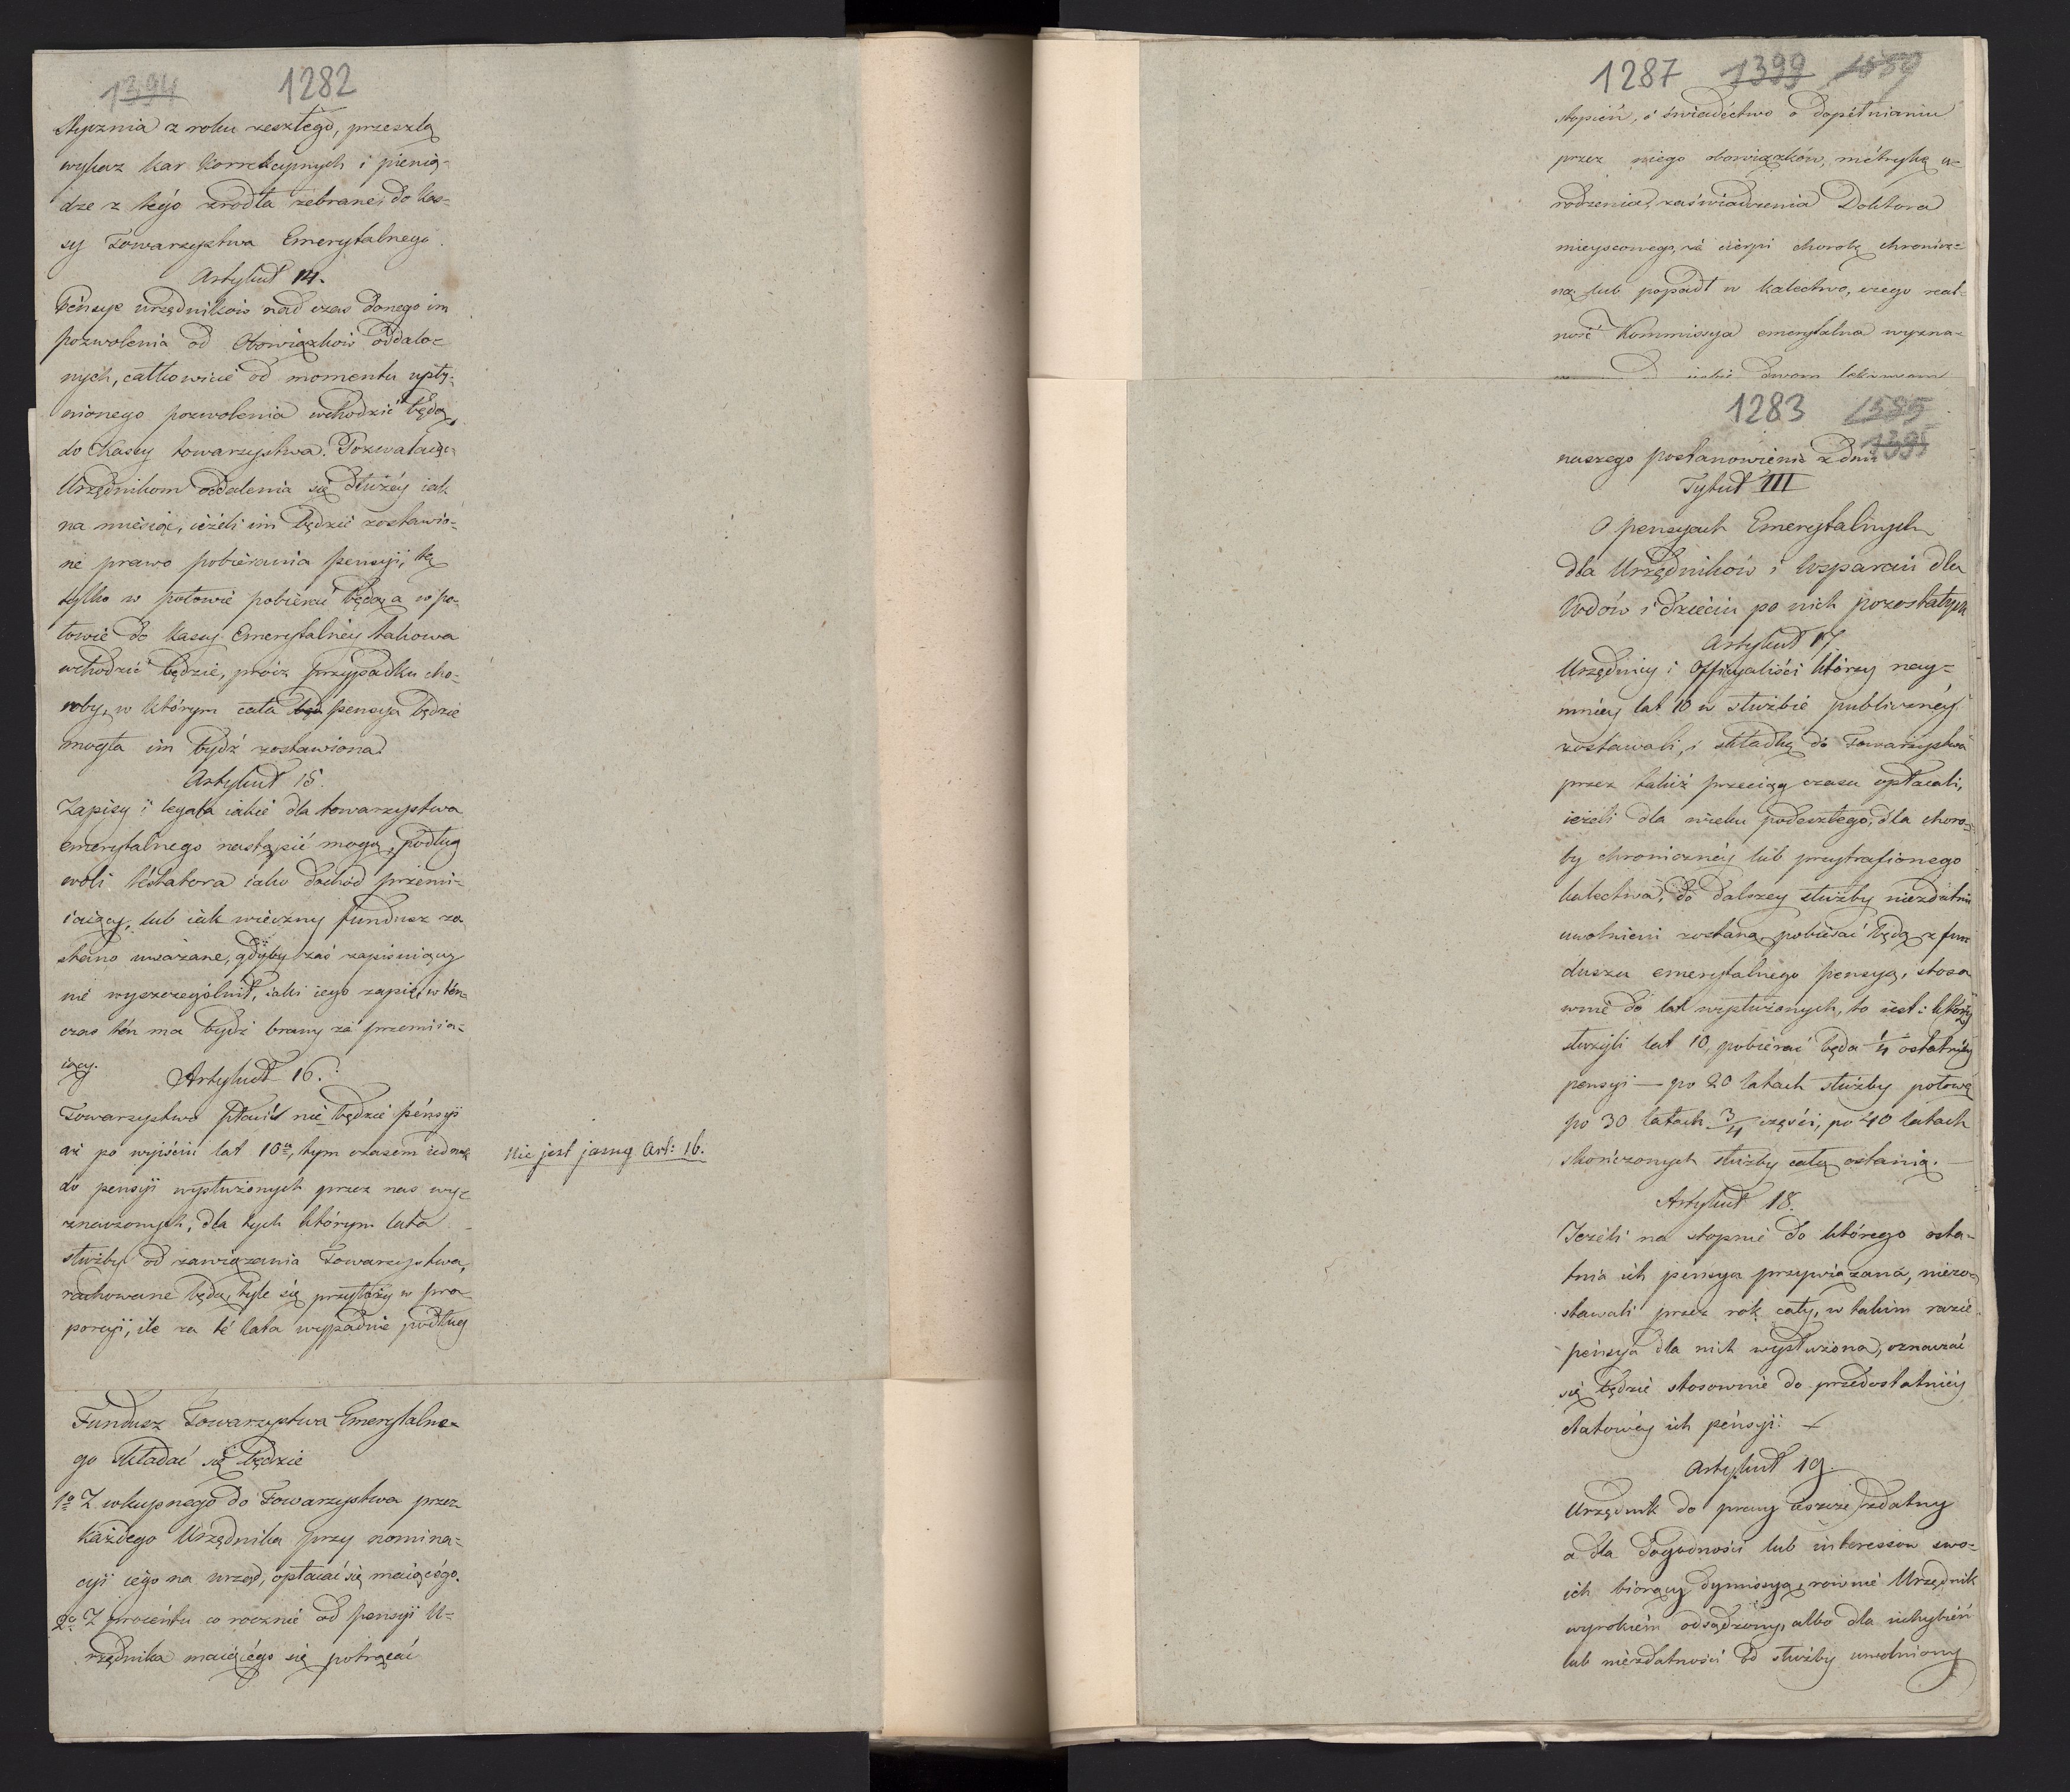 1394 1282
Stycznia z roku zeszłego, przeszlą
wykaz kar korrekcyinych i pienią-
dze z tego zrodła zebrane do kas-
sy Towarzystwa Emerytalnego.
Artykuł 14.
Pensye urzędnikow nad czas danego im
pozwolenia od Obowiązkow oddalo-
nych, całkowicie od momentu upły-
nionego pozwolenia wchodzić będą
do Kassy towarzystwa. Pozwalaiąc
Urzędnikom oddalenia się dłużéy iak
na miesiąc, ieżeli im będzie zostawio-
ne prawo pobierania pensyi, tę
tylko w połowie pobierać będą a w po-
łowie do kassy Emerytalnéy takowa
wchodzić będzie, prócz przypadku cho-
roby, w którym cała będ pensya będzie
mogła im bydź zostawiona.
Artykuł 15.
Zapisy i legata iakie dla towarzystwa
emerytalnego nastąpić mogą, podług
woli testatora iako dochod przemi-
iaiący, lub iak wieczny fundusz zo
staną uważane, gdyby zaś zapisuiący
nie wyszczególnił, iaki iego zapis, w ten-
czas ten ma bydź brany za przemiia-
iący.
Artykuł 16.
Towarzystwo płacić nie będzie pensyi
aż po wyiściu lat 10u, tym czasem iednak
do pensyi wysłużonych przez nas wy-
znaczonych, dla tych którym lata
służby od zawiązania Towarzystwa,
rachowane będą, tyle się przyłoży w pro-
porcyi, ile za té lata wypadnie podług
Nie jest jasny Art: 16.
Fundusz Towarzystwa Emerytalne-
go składać się będzie
1o Z wkupnego do Towarzystwa przez
każdego Urzędnika przy nomina-
cyi iego na urząd, opłacać się maiącego.
2o Z procentu co rocznie od pensyi U-
rzędnika maiącego się potrącać
1287 1399
stopień, i świadectwo o dopełnianiu
przez niego obowiązków, metrykę u-
rodzenia, zaświadczenia Doktora
mieyscowego, że cierpi chorobę chronicz-
ną lub popadł w kalectwo, czego real-
ność Kommissya emerytalna wyzna-
dwom lekarzom
1283 1585
1395
naszego postanowienia z dnia
Tytuł III
O pensyach Emerytalnych
dla Urzędników i wsparciu dla
Wdów i dzieciu po nich pozostałych
Artykuł 17
Urzędnicy i Officyaliści którzy nay-
mniéy lat 10 w służbie publicznéy
zostawali, i składkę do Towarzystwa
przez takiż przeciąg czasu opłacali,
ieżeli dla wieku podeszłego, dla choro-
by chronicznéy lub przytrafionego
kalectwa, do dalszey służby niezdatni
uwolnieni zostaną, pobierać będą z fun
duszu emerytalnego pensyą, stoso
wnie do lat wysłużonych, to iest: którzy
służyli lat 10, pobierać będą ¼ ostatniéy
pensyi — po 20 latach służby połowę
po 30 latach 3/4 części, po 40 latach
skończonych służby całą ostanią. —
Artykuł 18.
Jeżeli na stopnie do którego osta-
tnia ich pensya przywiązana, niezo-
stawali przez rok cały, w takim razie
pensya dla nich wysłużona, oznaczać
się będzie stosownie do przedostatniéy
etatowéy ich pensyi.
Artykuł 19.
Urzędnik do pracy ieszcze zdatny
a dla dogodności lub interessow swo-
ich biorący dymissyą, rownie Urzędnik
wyrokiem odsądzony, albo dla uchybień
lub niezdatności od służby uwolniony